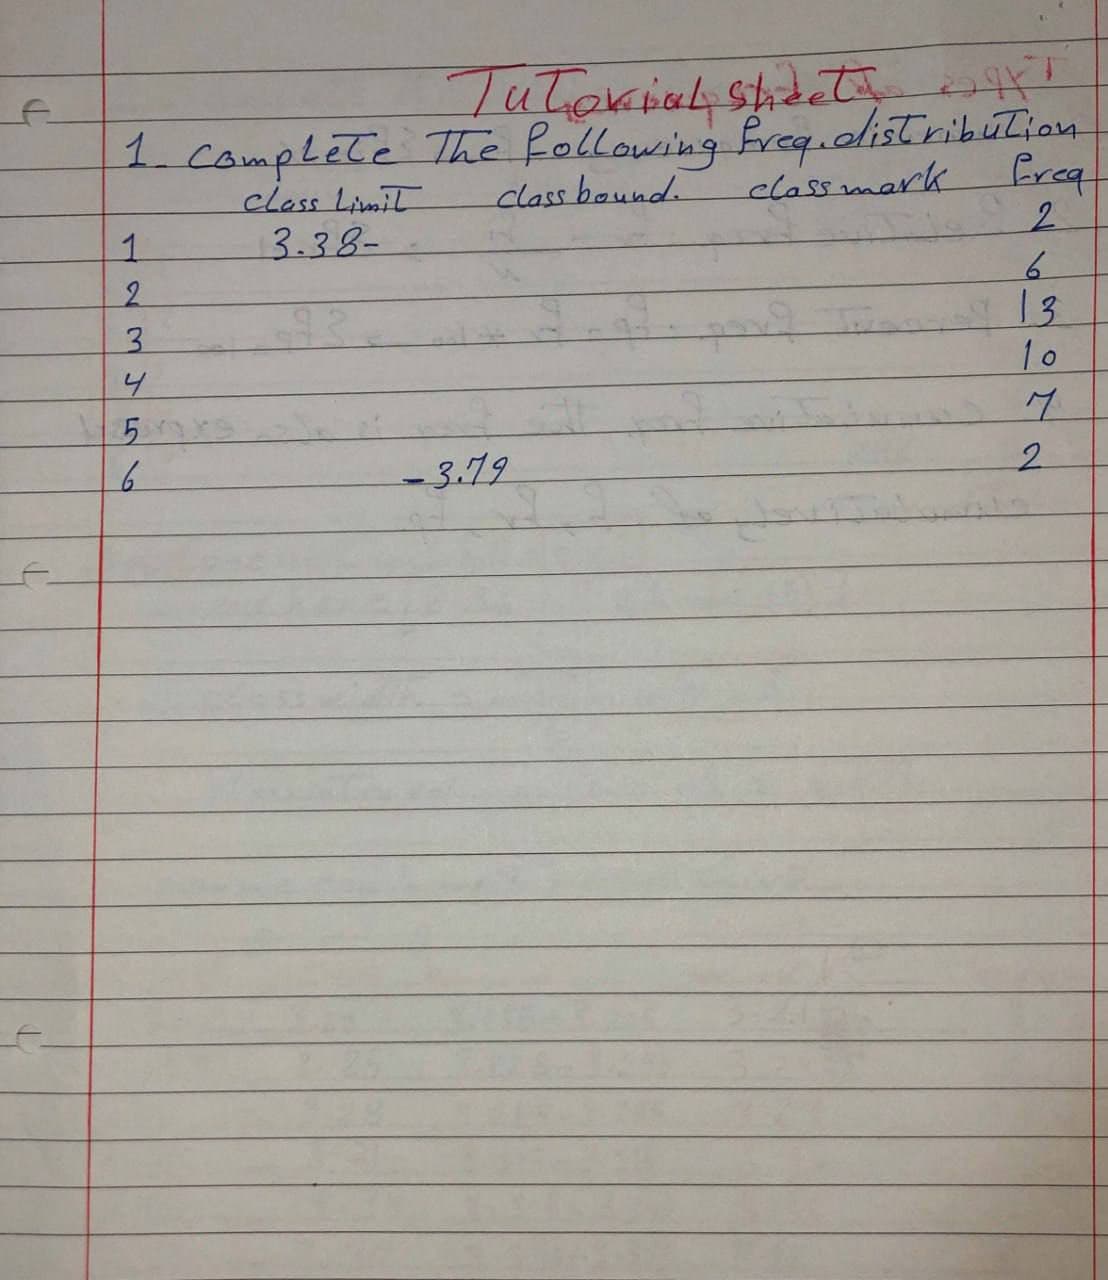 Tutorial sheet
1- complete The following freq. distribution
class Limit class bound. class mark freq
1 3.38- 2
2 6
3 13
4 10
5 7
6 -3.79 2